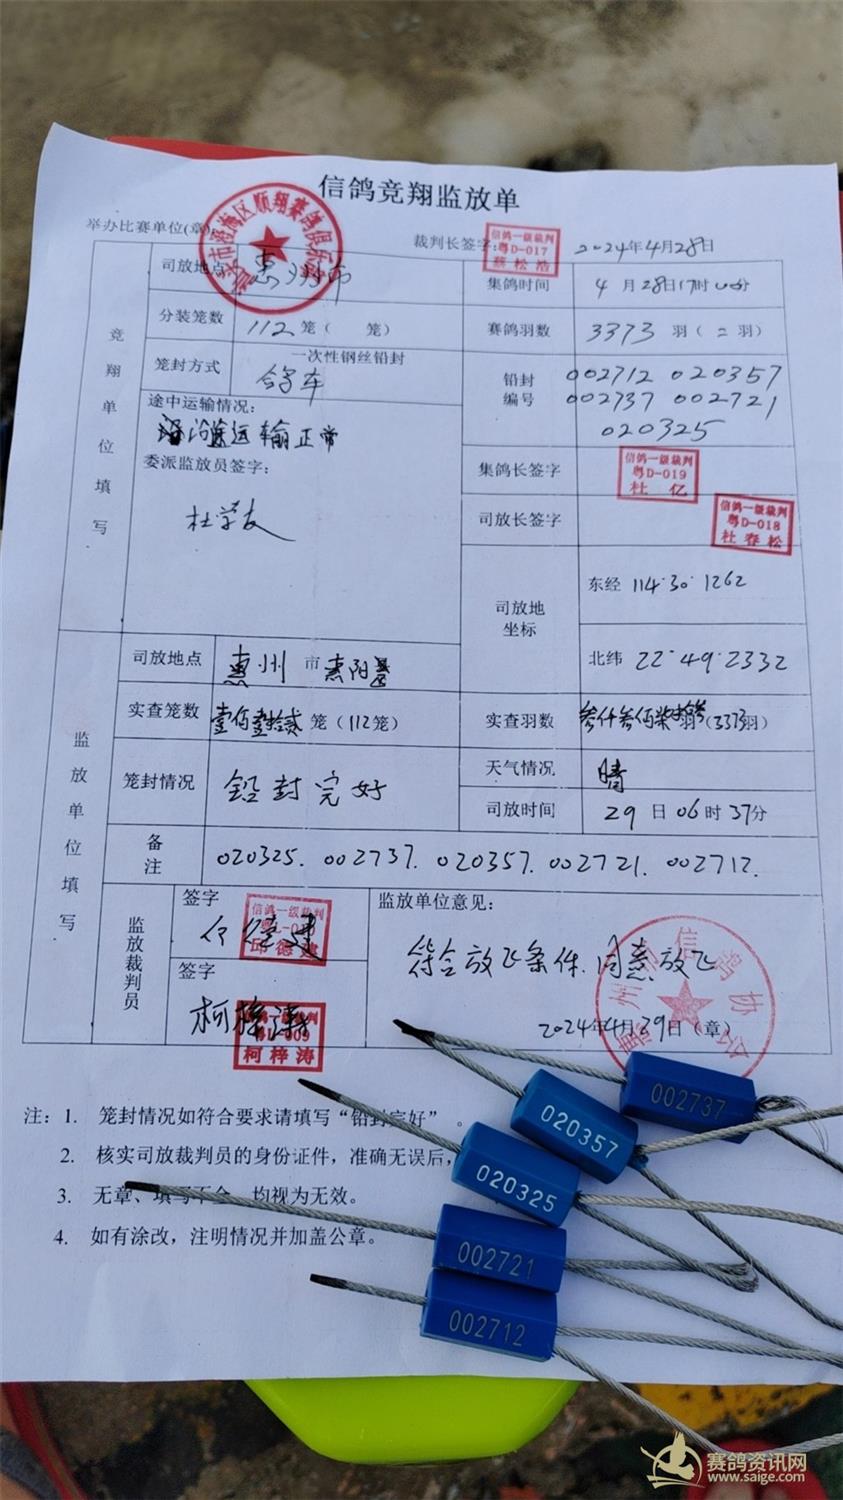 信鸽竞翔监放单
举办比赛单位(章):
汕头市澄海区顺翔赛鸽俱乐部
裁判长签字:
信鸽一级裁判
粤D-017
蔡松浩
2024年4月28日
竞翔单位填写
司放地点 惠州市
集鸽时间 4月28日17时00分
分装笼数 112笼( 笼)
赛鸽羽数 3373羽(二羽)
笼封方式 一次性钢丝铅封
合车
铅封编号 002712 020357
002737 002721
020325
途中运输情况:
沿途运输正常
委派监放员签字:
杜学友
集鸽长签字
信鸽一级裁判
粤D-019
杜亿
司放长签字
信鸽一级裁判
粤D-018
杜春松
司放地坐标
东经 114·30·1262
北纬 22·49·2332
监放单位填写
司放地点 惠州市惠阳县
实查笼数 壹佰壹拾贰笼(112笼)
实查羽数 叁仟叁佰柒拾叁羽(3373羽)
笼封情况 铅封完好
天气情况 晴
司放时间 29日06时37分
备注 020325. 002737. 020357. 002721. 002712.
监放裁判员
签字
信鸽一级裁判
邱德建
签字
柯梓涛
信鸽一级裁判
柯梓涛
监放单位意见:
符合放飞条件.同意放飞
2024年4月29日(章)
惠州市信鸽协会
注: 1. 笼封情况如符合要求请填写“铅封完好”。
2. 核实司放裁判员的身份证件,准确无误后,
3. 无章、填写不全,均视为无效。
4. 如有涂改,注明情况并加盖公章。
002737
020357
020325
002721
002712
赛鸽资讯网
www.saige.com